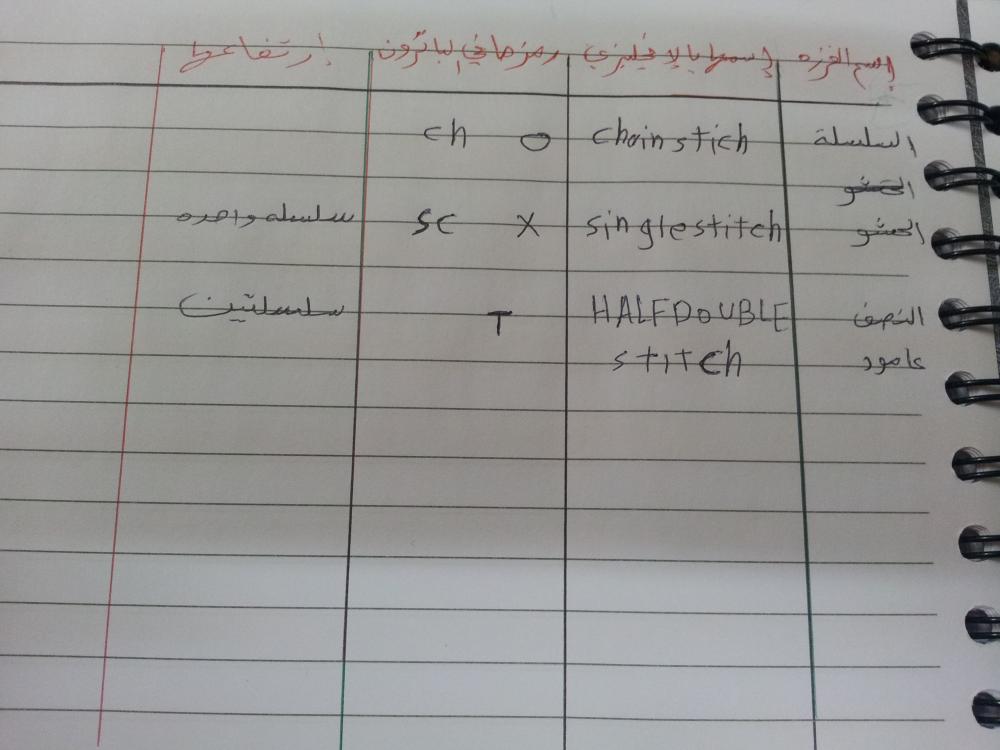 إسم الغرزه إسمها بالإنجليزي رمزها في الباترون إرتفاعها
السلسلة chain stich O ch
الحشو
الحشو single stitch X sc سلسله واحده
النصف HALF DOUBLE T سلسلتين
عامود stitch